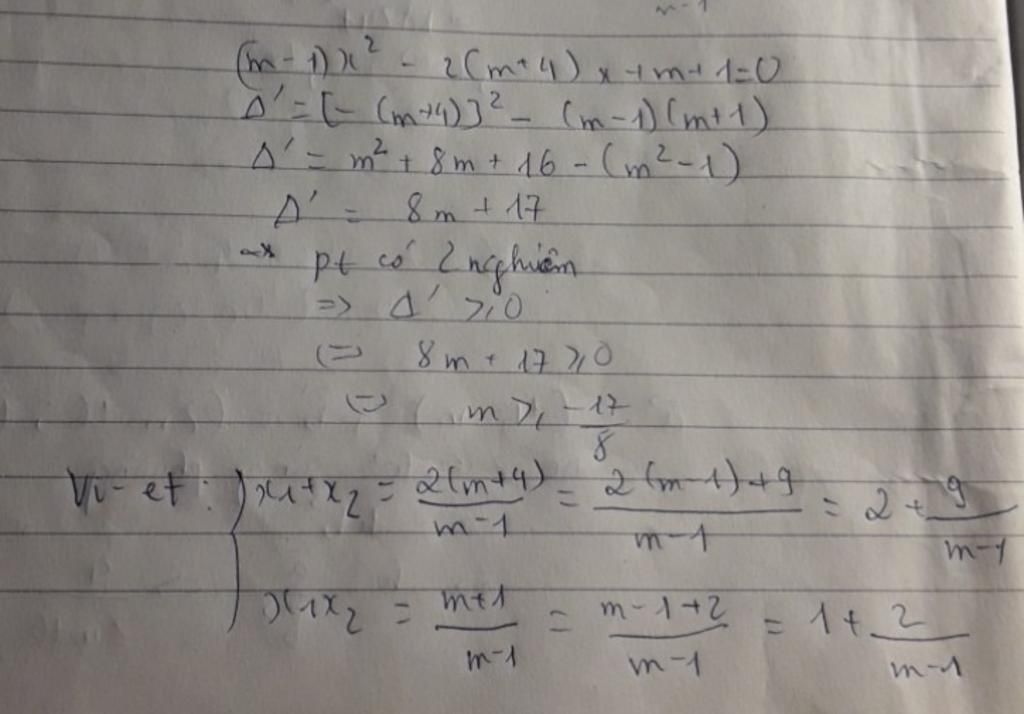 m-1
(m-1)x² - 2(m+4)x+m+1=0
Δ' = [-(m+4)]² - (m-1)(m+1)
Δ' = m² + 8m + 16 - (m²-1)
Δ' = 8m + 17
pt có 2 nghiệm
=> Δ' ≥ 0
<=> 8m + 17 ≥ 0
<=> m ≥ -17/8
Vi-et: { x1+x2 = 2(m+4)/(m-1) = (2(m-1)+9)/(m-1) = 2 + 9/(m-1)
x1x2 = (m+1)/(m-1) = (m-1+2)/(m-1) = 1 + 2/(m-1)